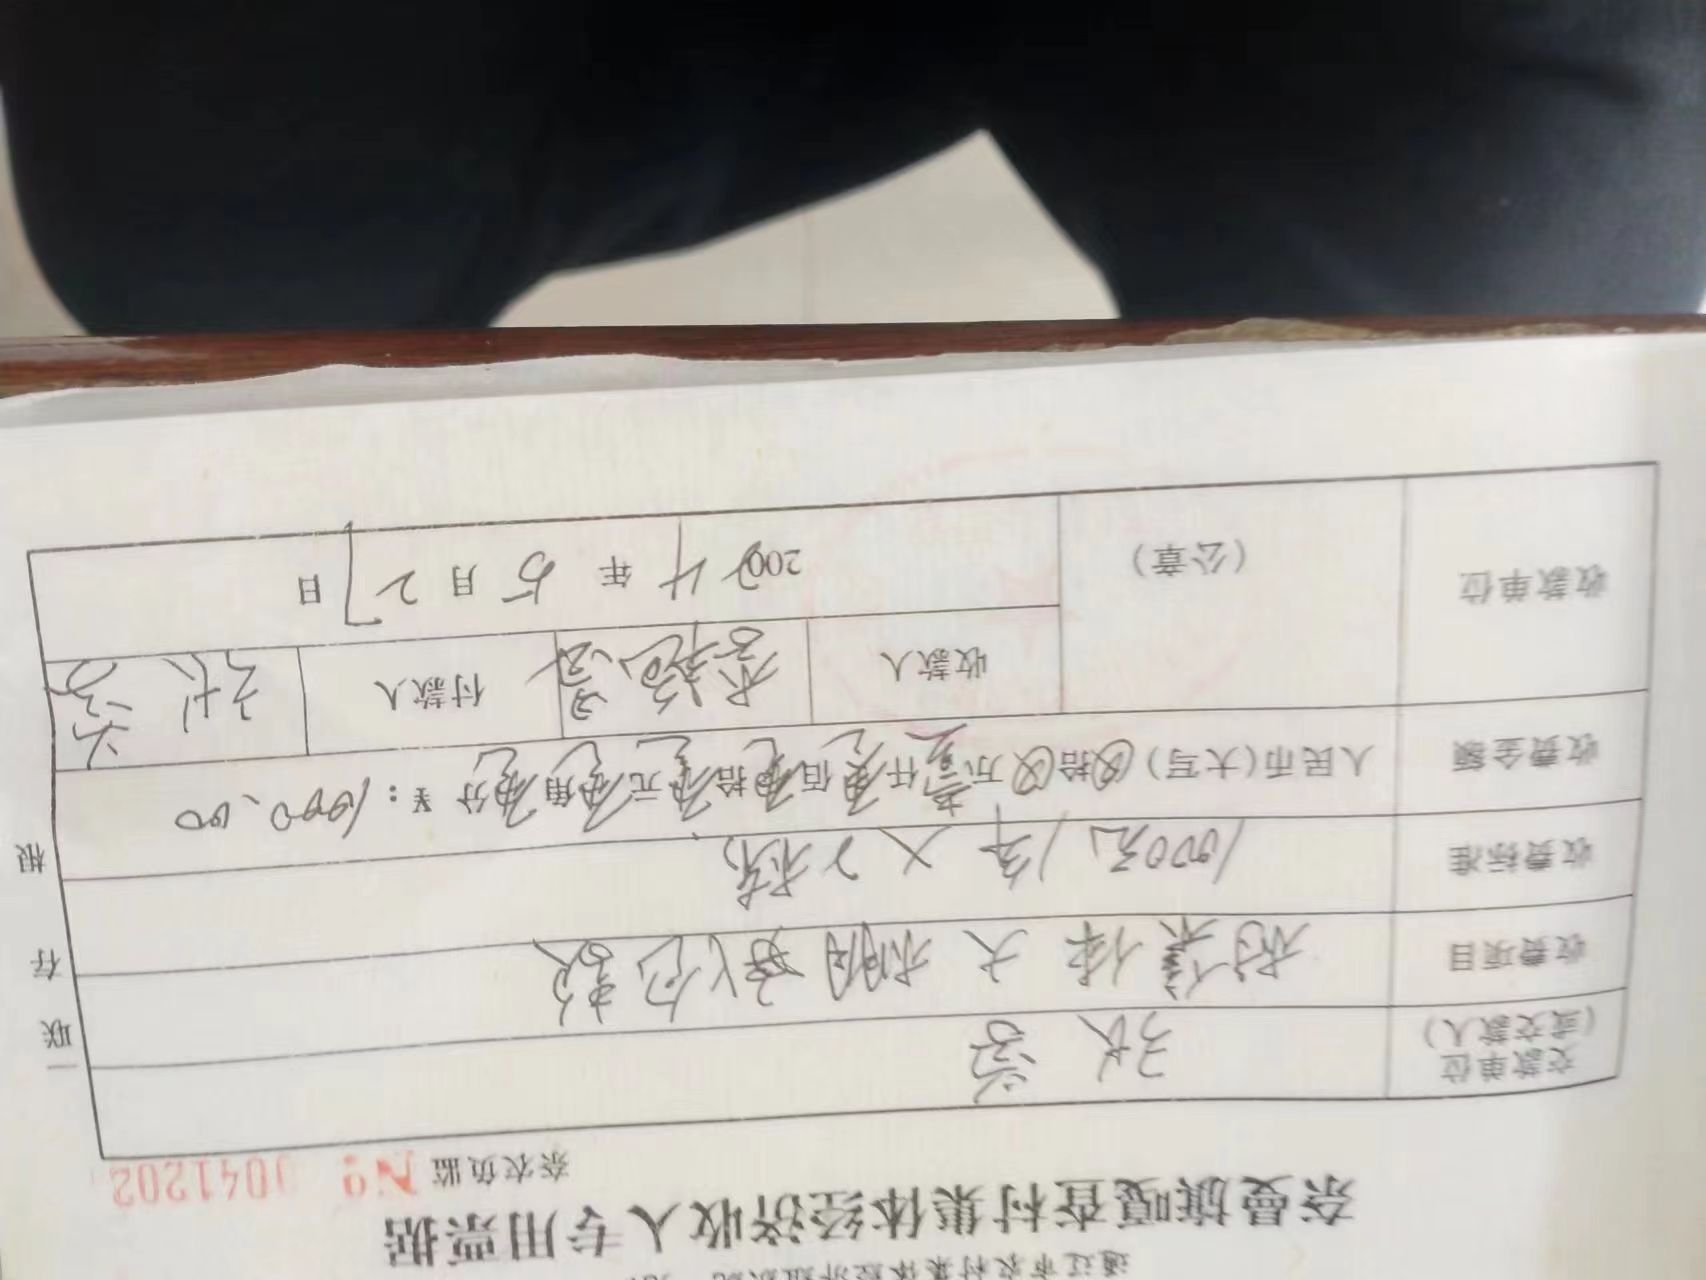 通辽市农村集体经济组织统一
奈曼旗嘎查村集体经济收入专用票据
奈农负监 №
交款单位
(或交款人)
张芳
收费项目
村集体大棚承包款
收费标准
1000元/年×2栋
收费金额
人民币(大写)⊗拾⊗万壹仟零佰零拾零元零角零分 ¥:1000.00
收款单位
(公章)
收款人
付款人
张芳
2024年5月27日
一联存根